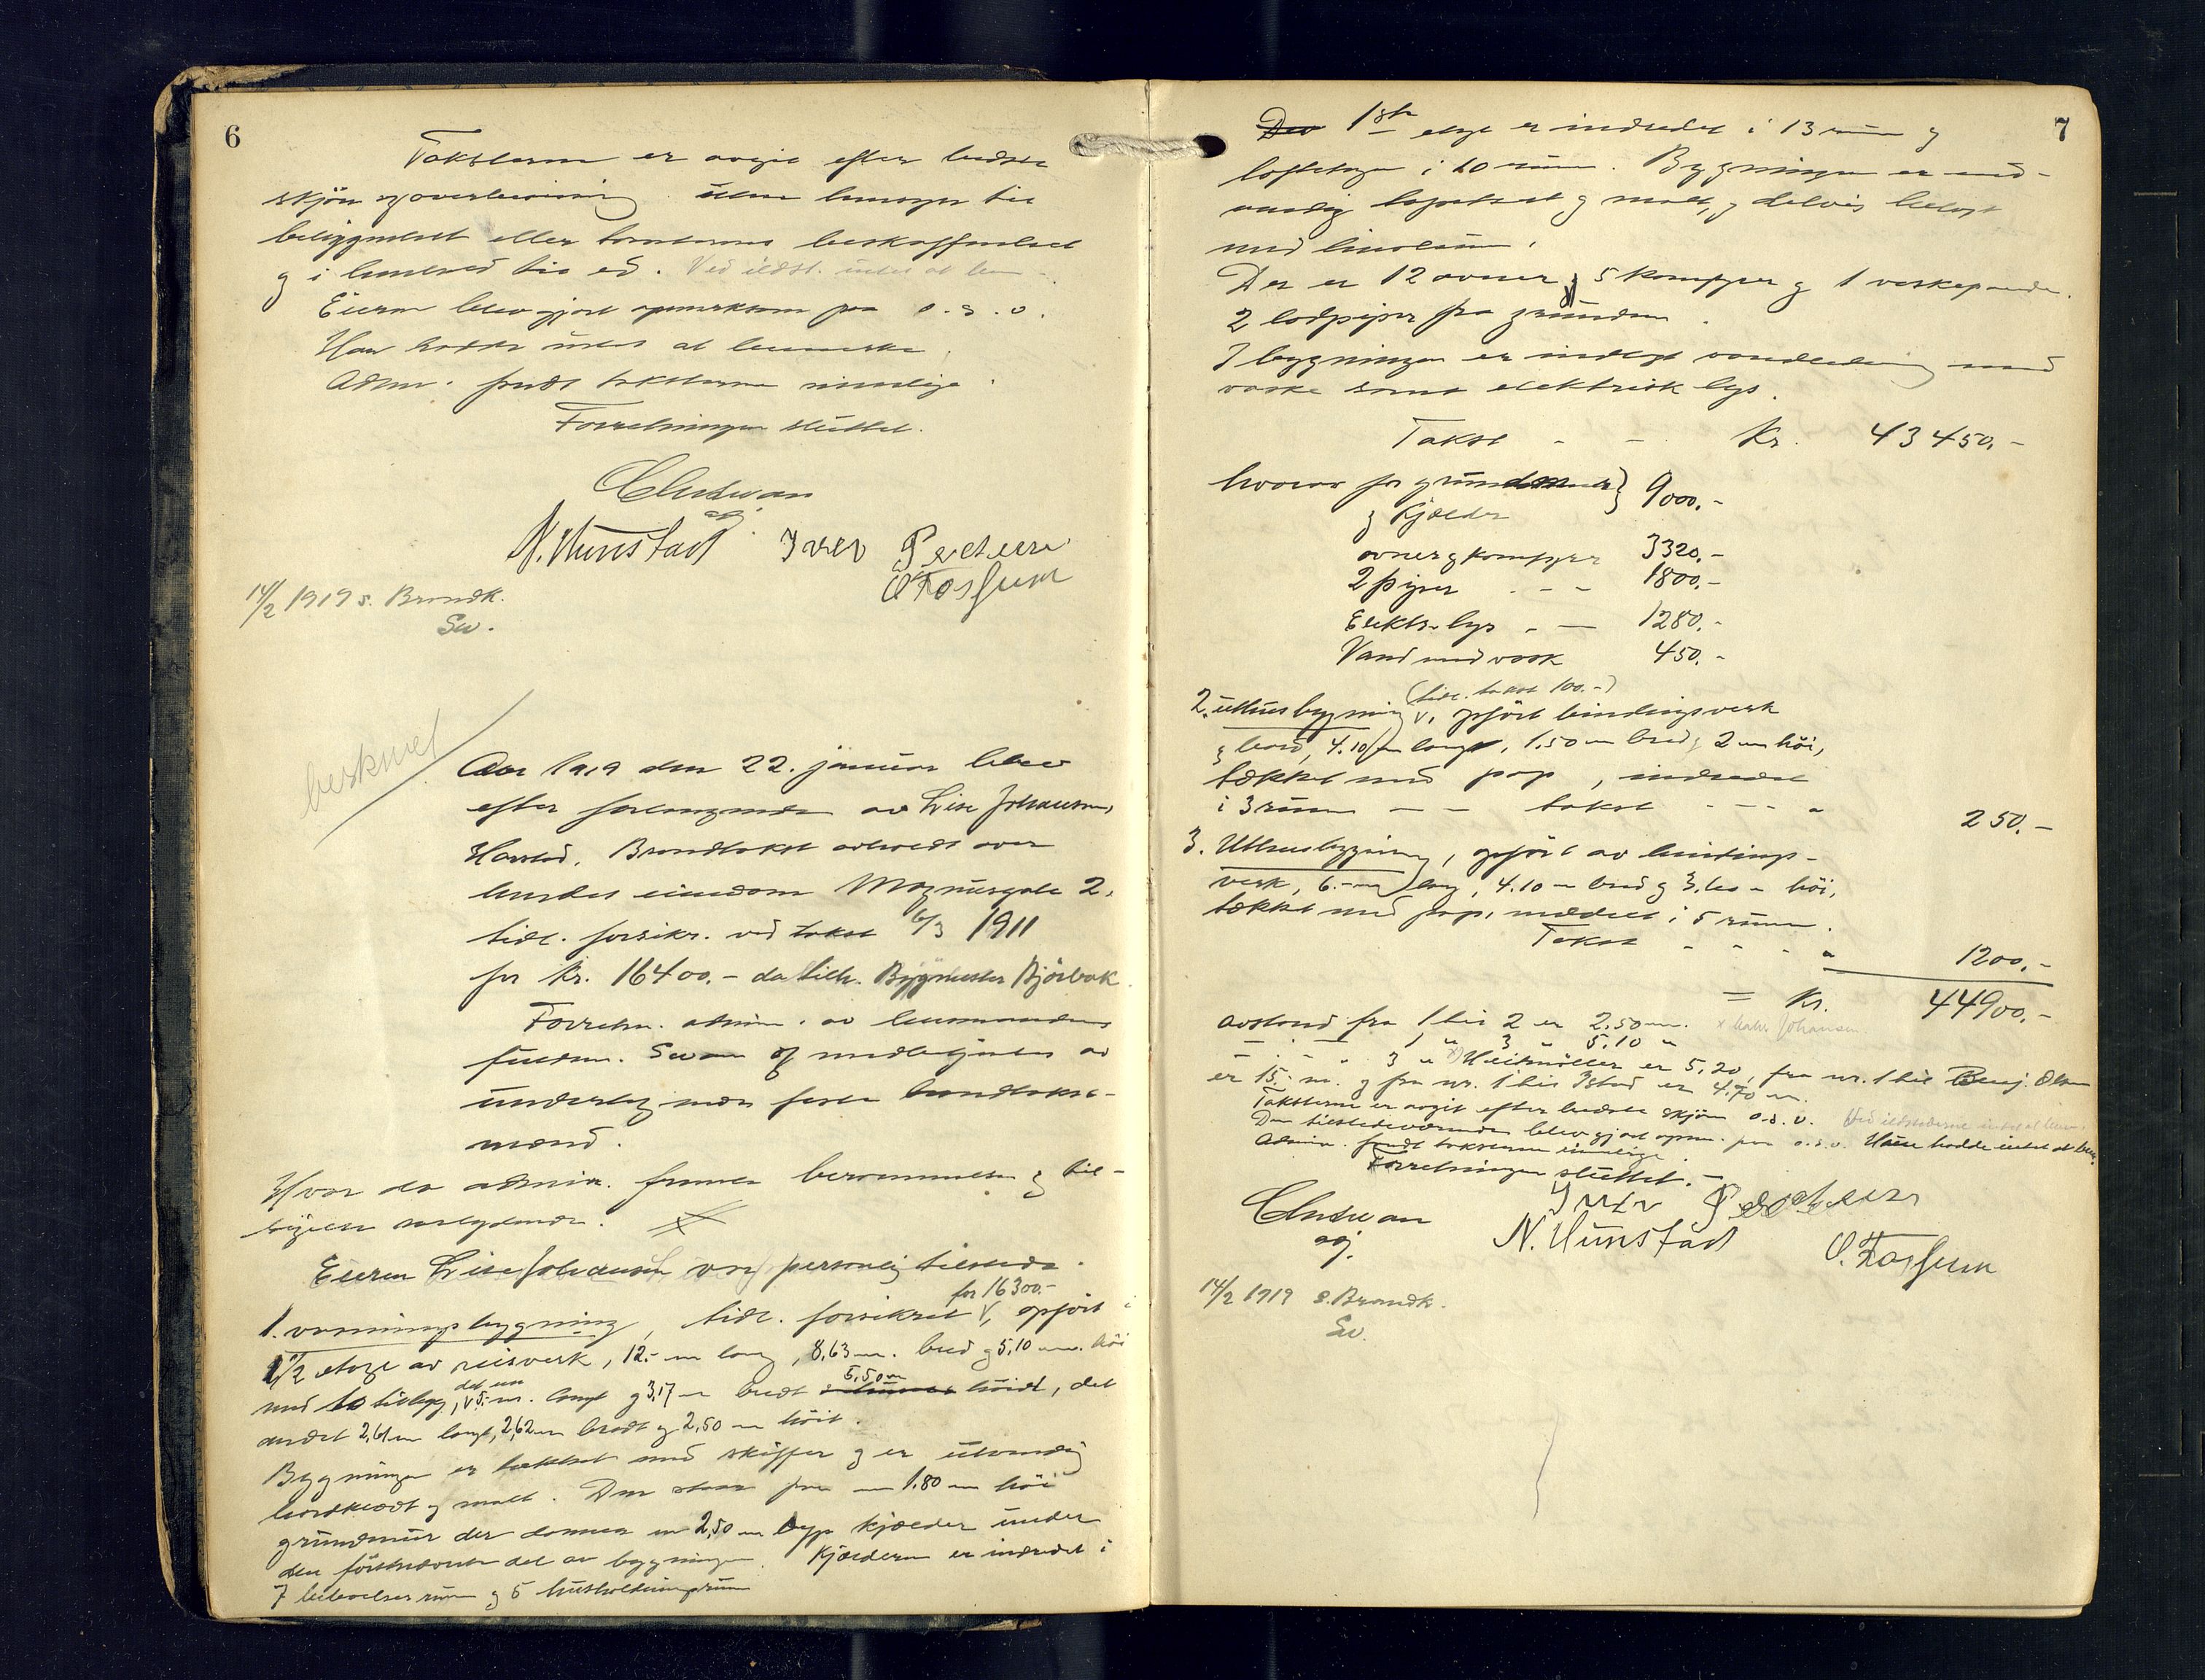 6
Taksterne er avgit efter bedste
skjøn og overbevisning uten hensyn til
beliggenhet eller tomternes beskaffenhet
og i henhold til ed. Ved ildst. intet at bem.
Eieren blev gjort opmerksom paa o. s. v.
Han hadde intet at bemerke.
Adm. fandt taksterne rimelige.
Forretningen sluttet.
N. Hunstad Iver Pedersen
O Fossum
14/2 1919 s. Brandk.
Sv.
beskrevet
Aar 1919 den 22. januar blev
efter forlangende av Lise Johansen,
Harstad, Brandtakst avholdt over
hendes eiendom Magnusgate 2,
tidl. forsikr. ved takst 6/3 1911
for kr. 16400.- da tilh. Bygmester Bjørbak
Forretn. admin. av lensmandens
fuldm. Svan og medbetjentes av
undertegnede faste brandtakst-
mænd.
Hvor da admin. fremla berammelsen og til-
sigelse vedgaaende.
Eieren Lise Johansen var personlig tilstede.
for 16300.-
1. vaaningsbygning, tidl. forsikret V, opført i
1 1/2 etage av reisverk, 12.- m lang, 8,63 m. bred og 5,10 m. høi
det ene 5,50 m
med to tilbygg, V 5.- m. langt og 3,17 m bredt høit, det
andet 2,61 m langt, 2,62 m bredt og 2,50 m høit.
Bygningen er tækket med skiffer og er utvendig
bordklædt og malt. Den staar paa en 1.80 m høi
grundmur der danner en 2,50 m dyp kjælder under
den førstnævnte del av bygningen. Kjælderen er indredet i
7 beboelsesrum og 5 husholdningsrum
7
Den 1ste etage er indredet i 13 rum og
loftetagen i 10 rum. Bygningen er ind-
vendig tapetsert og malt, og delvis belagt
med linoleum.
Der er 12 ovner, 5 komfyrer og 1 vaskepande.
2 lodpiper fra grunden.
I bygningen er indlagt vandledning med
vaske samt elektrisk lys.
Takst - - Kr. 43450,-
hvorav for grundmur } 9000.-
og kjælder
ovner og komfyrer 3320.-
2 piper - - - 1800.-
Elektr. lys - — 1280.-
Vand med vask 450.-
(tidl. takst 100.-)
2. uthusbygning V, opført bindingsverk
og bord, 4.10 m lang, 1.50 m bred, 2 m høi,
tækket med pap, indredet
i 3 rum - - takst - - - " 250.-
3. Uthusbygning, opført av bindings-
verk, 6.- m lang, 4.10 m bred og 3.60 m høi,
tækket med pap, indredet i 5 rum.
Takst - - - " 1200.-
= Kr. 44900.-
Avstand fra 1 til 2 er 2.50 m. x Johansen
— " — 1 " 3 " 5.10 "
— " — " 3 " x) Heitmüller er 5,20, fra nr. 1 til Benj. Olsen
er 15.- m. og fra nr. 1 til er 4.70 m.
Taksterne er avgit efter bedste skjøn o.s.v. Ved ildstederne intet at bem.
Den tilstedeværende blev gjort opm. paa o.s.v. Hun hadde intet at bem.
Admin. fandt taksterne rimelige.
Forretningen sluttet.-
Iver Pedersen
N. Hunstad
O. Fossum
14/2 1919 s. Brandk.
Sv.